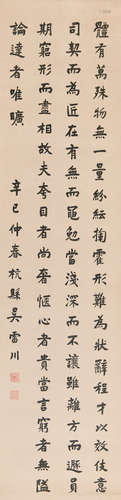 體有萬殊物無一量紛紜揮霍形難為狀辭程才以效伎意
司契而為匠在有無而黽勉當淺深而不讓雖離方而遯員
期窮形而盡相故夫夸目者尚奢愜心者貴當言窮者無隘
論達者唯曠
辛巳仲春杭縣吳雷川